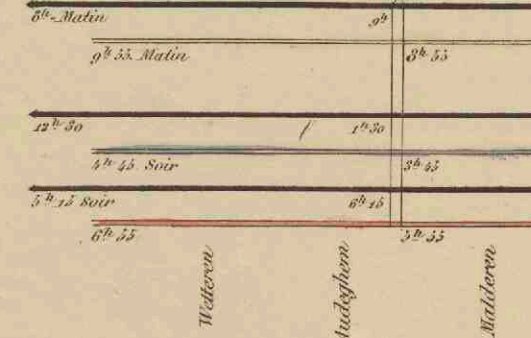 8h- Matin 9h
9h 55. Matin 8h 55
12h 30 1h 30
4h 45 Soir 3h 45
5h 15 Soir 6h 15
6h 55 5h 55
Wetteren
Audeghem
Malderen